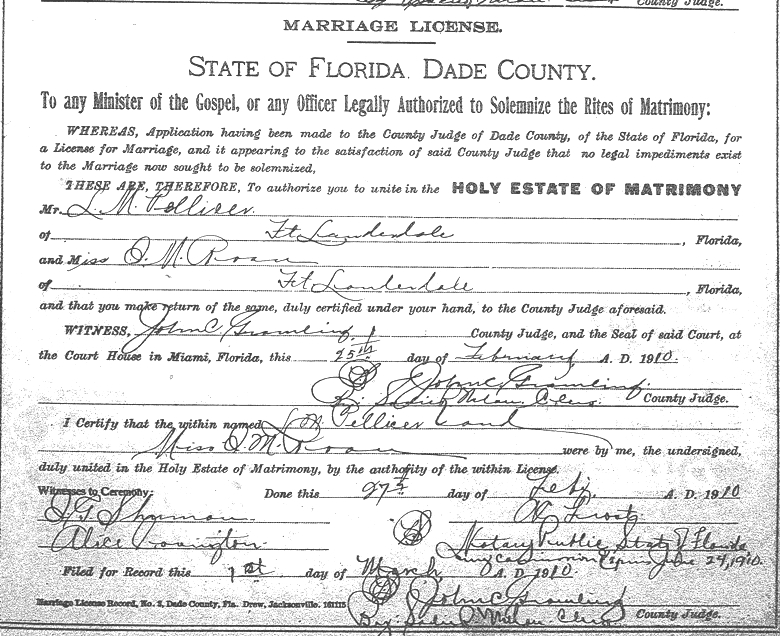 County Judge.
MARRIAGE LICENSE.
STATE OF FLORIDA, DADE COUNTY.
To any Minister of the Gospel, or any Officer Legally Authorized to Solemnize the Rites of Matrimony:
WHEREAS, Application having been made to the County Judge of Dade County, of the State of Florida, for
a License for Marriage, and it appearing to the satisfaction of said County Judge that no legal impediments exist
to the Marriage now sought to be solemnized,
THESE ARE, THEREFORE, To authorize you to unite in the HOLY ESTATE OF MATRIMONY
Mr. L. M. Pellicer
of Ft Lauderdale, Florida,
and Miss O. M. Roan
of Ft Lauderdale, Florida,
and that you make return of the same, duly certified under your hand, to the County Judge aforesaid.
WITNESS, John C. Gramling County Judge, and the Seal of said Court, at
the Court House in Miami, Florida, this 25th day of February A. D. 1910.
John C. Gramling
By: County Judge.
I Certify that the within named L M Pellicer and
Miss O M Roan were by me, the undersigned,
duly united in the Holy Estate of Matrimony, by the authority of the within License.
Witnesses to Ceremony: Done this 27th day of Feby. A. D. 1910
Alice
Notary Public State of Florida
My Commission Expires June 24, 1910.
Filed for Record this 1st day of March A. D. 1910.
John C. Gramling
Marriage License Record, No. 2, Dade County, Fla. Drew, Jacksonville. 161115
By: County Judge.